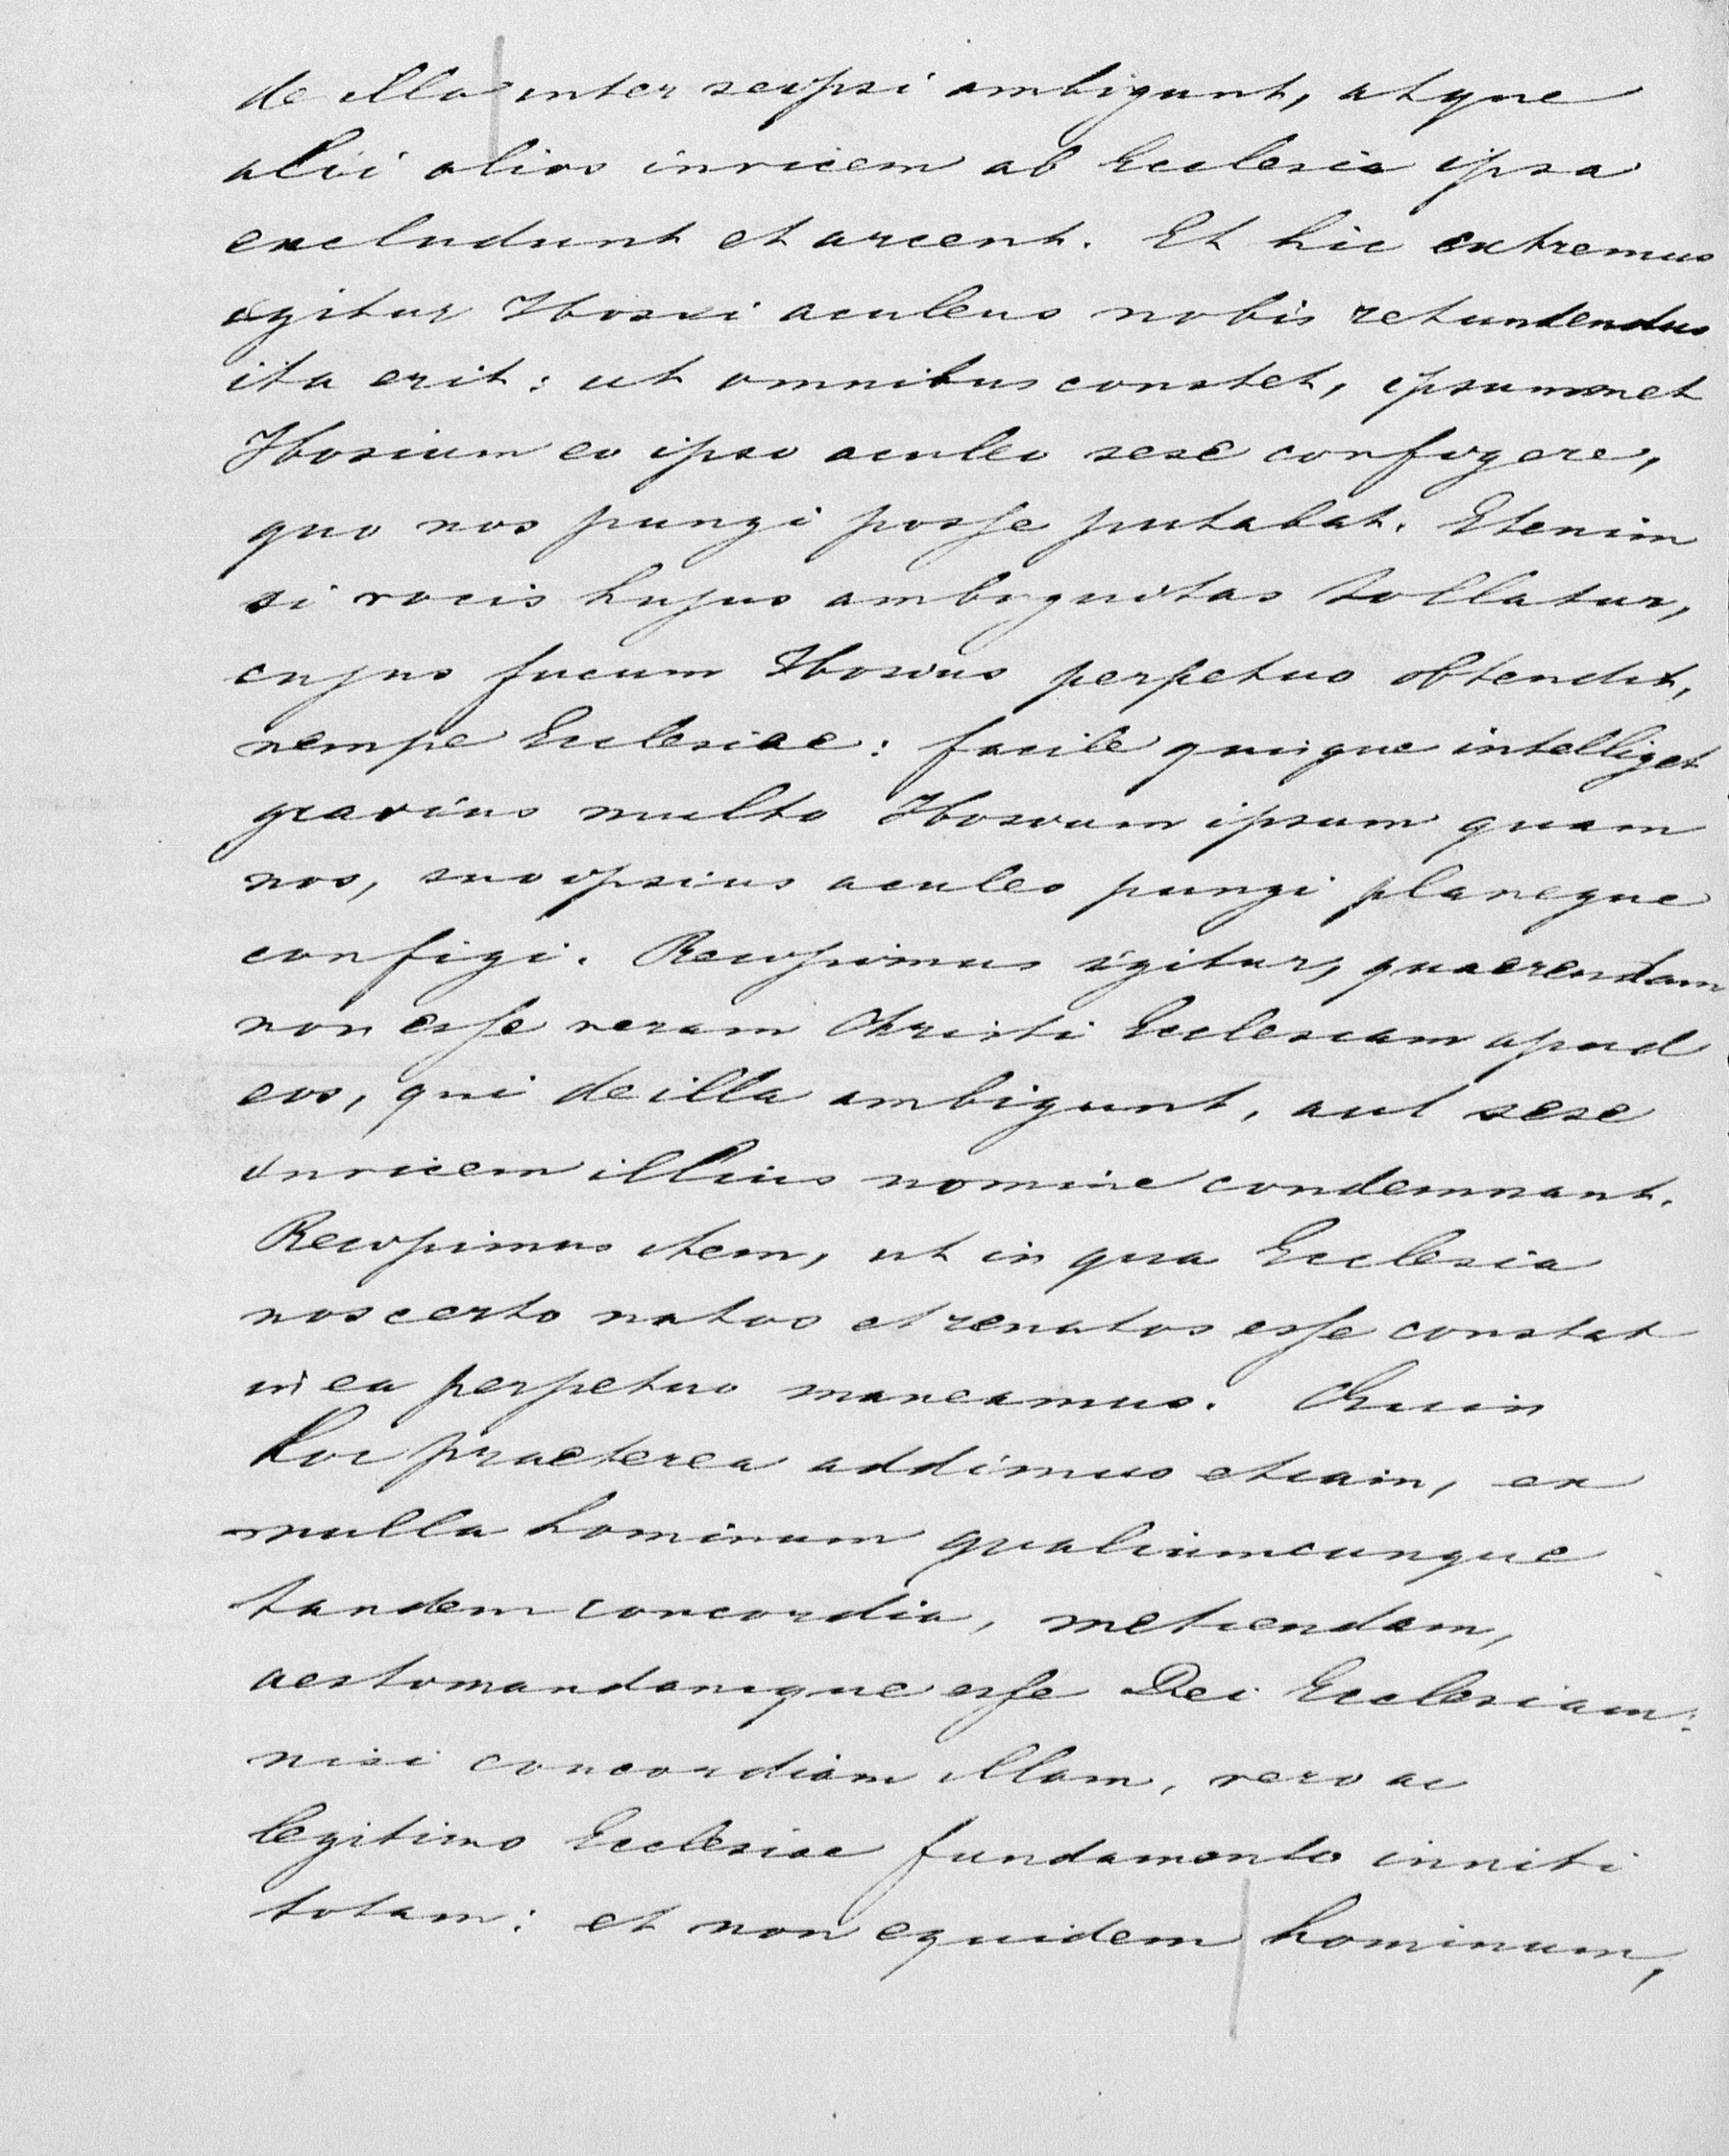 de illa inter seipsi ambigunt, atque
alii alios invicem ab Ecclesia ipsa
excludunt et arcent. Et hic extremus
igitur Hosii aculeus nobis retundendus
ita erit: ut omnibus constet, ipsummet
Hosium eo ipso aculeo sese configere,
quo nos pungi posse putabat. Etenim
si vocis hujus ambiguitas tollatur,
cujus fucum Hosius perpetuo obtendit,
nempe Ecclesiae: facile quique intelliget
gravius multo Hosium ipsum quam
nos, suo ipsius aculeo pungi planeque
configi. Recipimus igitur, quaerendam
non esse veram Christi Ecclesiam apud
eos, qui de illa ambigunt, aut sese
invicem illius nomine condemnant.
Recipimus item, ut in qua Ecclesia
nos certo natos et renatos esse constat
in ea perpetuo maneamus. Quin
hoc praeterea addimus etiam, ex
nulla hominum qualiumcunque
tandem concordia, metiendam,
aestimandamque esse Dei Ecclesiam:
nisi concordiam illam, vero ac
legitimo Ecclesiae fundamento inniti
totam: et non equidem hominum,